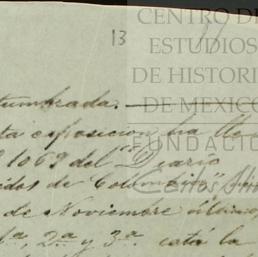 CENTRO DE
ESTUDIOS
DE HISTORI
DE MEXICO
FUNDACIÓN
Carlos
13
tumbrada.
ta exposicion ha
1069 del "Diario
idos de Colombia"
de Noviembre último
1ª, 2ª y 3ª está la